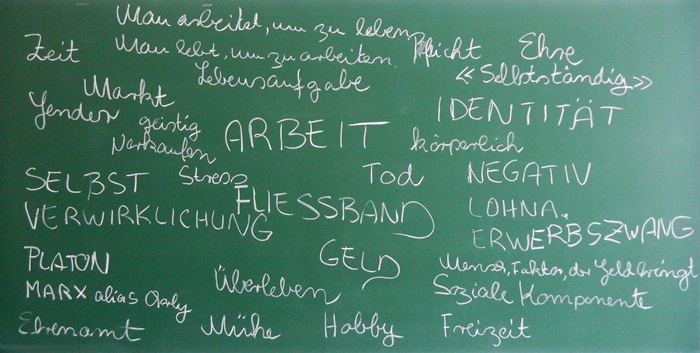 Man arbeitet, um zu leben
Zeit Man lebt, um zu arbeiten. Pflicht Ehre
Lebensaufgabe «Selbstständig»
Markt
Gender geistig ARBEIT IDENTITÄT
Verkaufen körperlich
SELBST Stress Tod NEGATIV
VERWIRKLICHUNG FLIESSBAND LOHNA.
ERWERBSZWANG
PLATON GELD Mensch, Faktor, der Geld bringt
MARX alias Überleben Soziale Komponente
Ehrenamt Mühe Hobby Freizeit